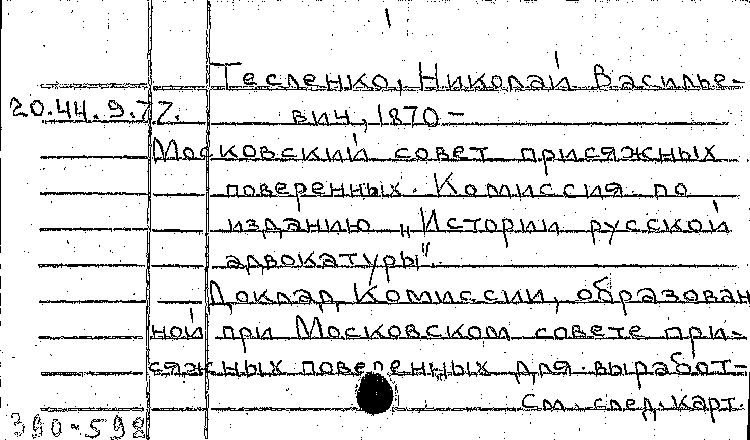 1
Тесленко, Николай Василье-
20.44.9.77. вич, 1870-
Московский совет присяжных
поверенных. Комиссия по
изданию „Истории русской
адвокатуры".
Доклад Комиссии, образован
ной при Московском совете при-
сяжных поверенных для выработ-
см. след. карт.
390-598